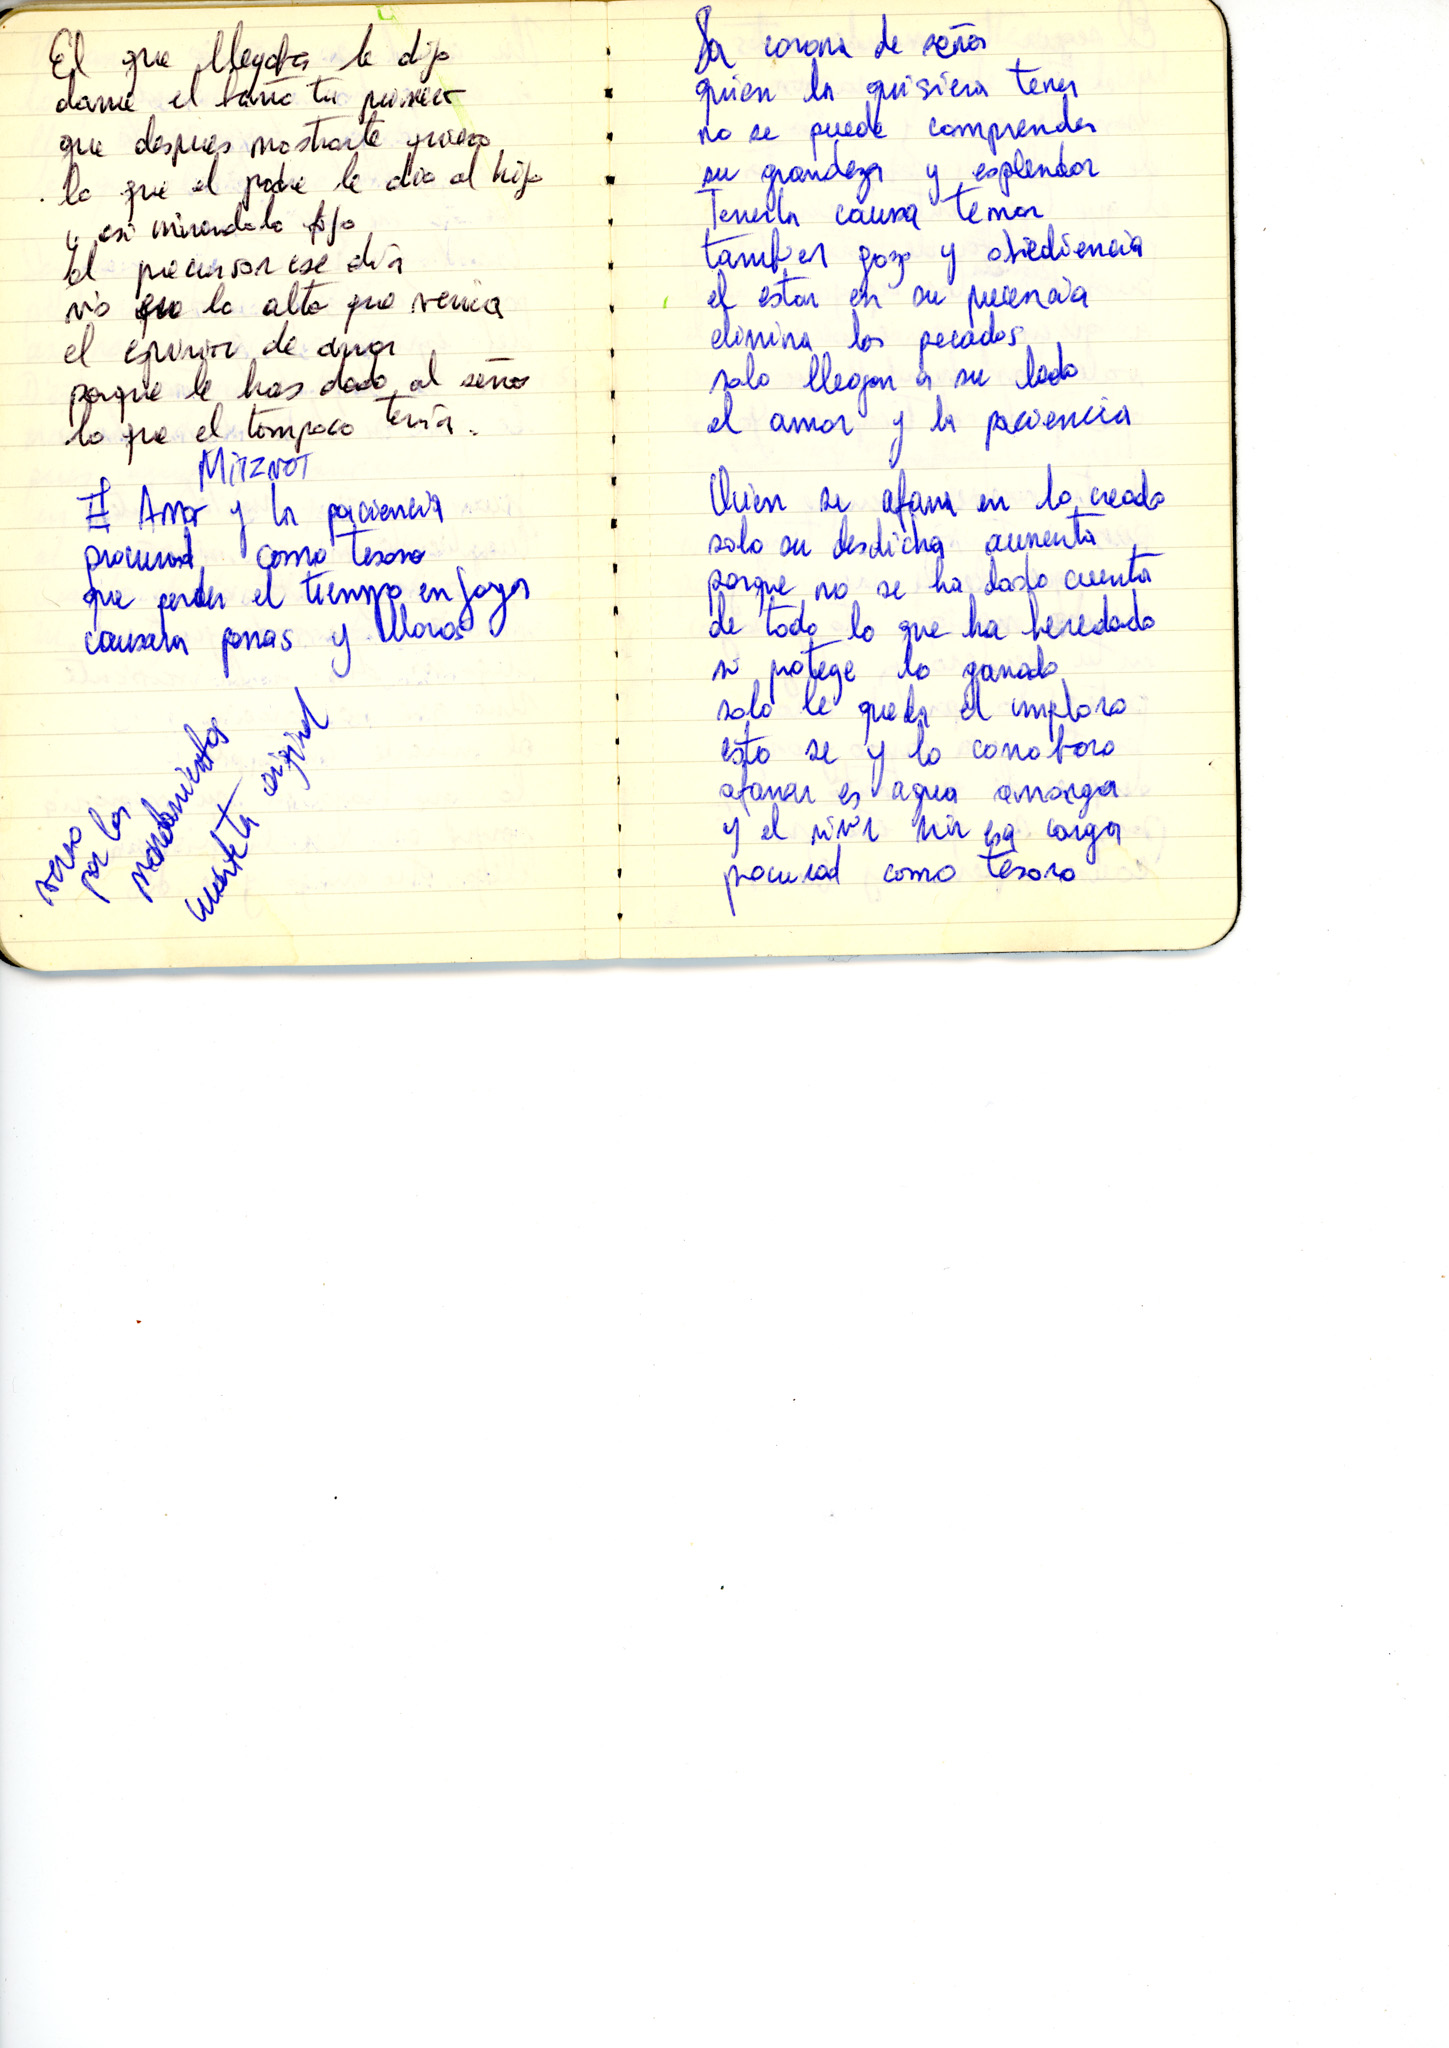 El que llegaba le dijo
dame el baño tu primero
que despues mostrarte quiero
lo que el padre le dio al hijo
y asi mirandolo fijo
el precursor ese dia
vio que lo alto que venia
el espiritu de amor
porque le has dado al señor
lo que el tampoco tenia.
MITZVOT
II Amor y la paciencia
procurad como tesoro
que perder el tiempo en joyas
causara penas y lloros
verso
por los
mandamientos
cuarteta original
La corona de señor
quien la quisiera tener
no se puede comprender
su grandeza y esplendor
Tenerla causa temor
tambien gozo y obediencia
el estar en su precencia
elimina los pecados
solo llegan a su lado
el amor y la paciencia
Quien se afana en lo creado
solo su desdicha aumenta
porque no se ha dado cuenta
de todo lo que ha heredado
si protege lo ganado
solo le queda el imploro
esto se y lo corroboro
afanar es agua amarga
y el vivir sin esa carga
procurad como tesoro